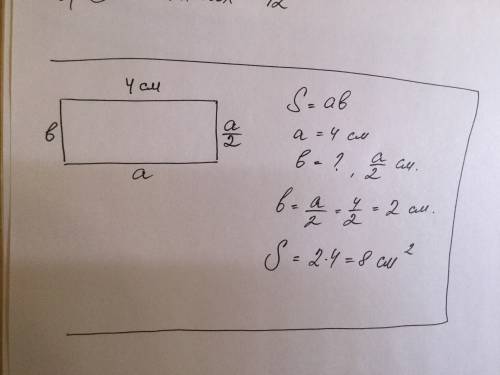 4 см
в
a/2
a
S = aв
a = 4 см
в = ?, a/2 см.
в = a/2 = 4/2 = 2 см.
S = 2·4 = 8 см²